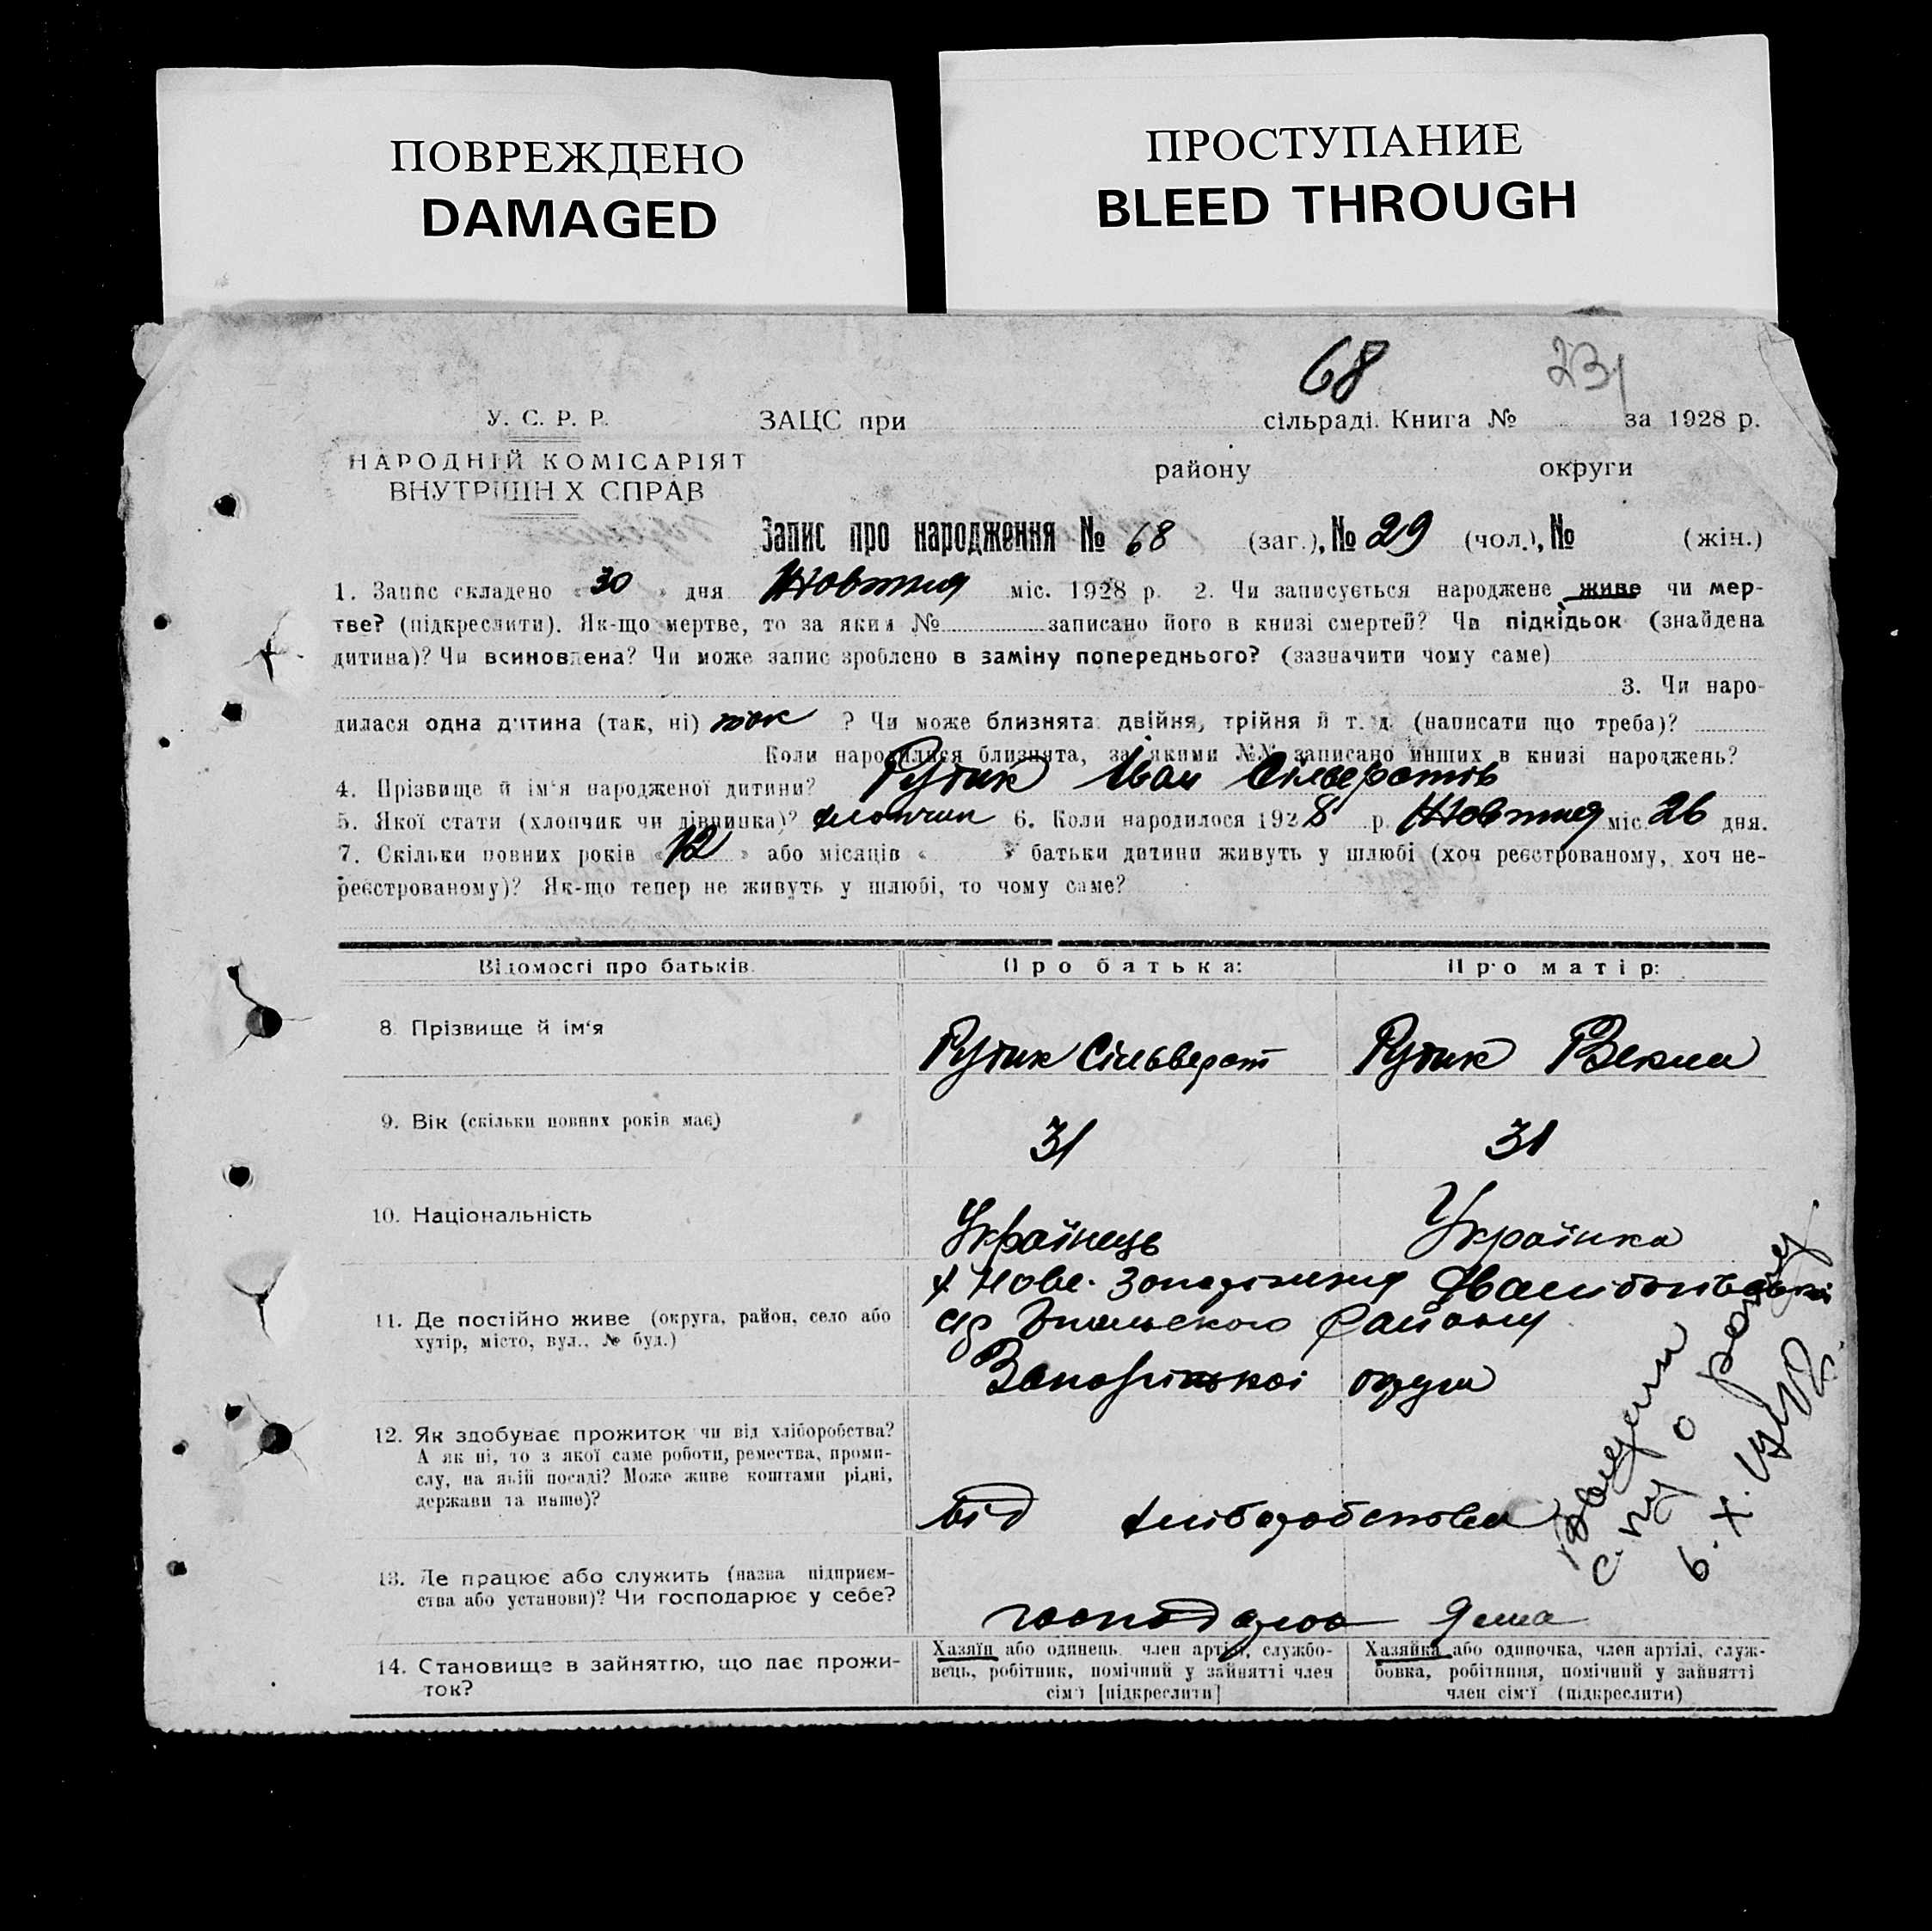 ПОВРЕЖДЕНО
DAMAGED
ПРОСТУПАНИЕ
BLEED THROUGH
68 231
У. С. Р. Р. ЗАЦС при сільраді. Книга № за 1928 р.
НАРОДНІЙ КОМІСАРІЯТ району округи
ВНУТРІШН Х СПРАВ
Запис про народження № 68 (заг.), № 29 (чол.), № (жін.)
1. Запис складено « 30 » дня Жовтня міс. 1928 р. 2. Чи записується народжене живе чи мер-
тве? (підкреслити). Як-що мертве, то за яким № записано його в книзі смертей? Чи підкідьок (знайдена
дитина)? Чи всиновлена? Чи може запис зроблено в заміну попереднього? (зазначити чому саме)
3. Чи наро-
дилася одна дитина (так, ні) так ? Чи може близнята: двійня, трійня й т. д. (написати що треба)?
Коли народилися близнята, за якими №№ записано инших в книзі народжень?
4. Прізвище й ім'я народженої дитини? Рутик Іван
5. Якої стати (хлопчик чи дівчинка)? хлопчик 6. Коли народилося 1928 р. Жовтня міс. 26 дня.
7. Скільки повних років « 12 » або місяців « » батьки дитини живуть у шлюбі (хоч реєстрованому, хоч не-
реєстрованому)? Як-що тепер не живуть у шлюбі, то чому саме?
Відомості про батьків. Про батька: Про матір:
8. Прізвище й ім'я Рутик Сільверст Рутик
9. Вік (скільки повних років має) 31 31
10. Національність Українець Українка
11. Де постійно живе (округа, район, село або
хутір, місто, вул., № буд.)
х Нове Запоріжжя
району
Запорізької округи
12. Як здобуває прожиток чи від хліборобства?
А як ні, то з якої саме роботи, ремества, проми-
слу, на якій посаді? Може живе коштами рідні,
держави та инше)?
від хліборобства
13. Де працює або служить (назва підприєм-
ства або установи)? Чи господарює у себе?
14. Становище в зайняттю, що дає прожи-
ток?
Хазяїн або одинець, член артілі, службо-
вець, робітник, помічний у зайнятті член
сім'ї [підкреслити]
Хазяйка або одиночка, член артілі, служ-
бовка, робітниця, помічний у зайнятті
член сім'ї (підкреслити)